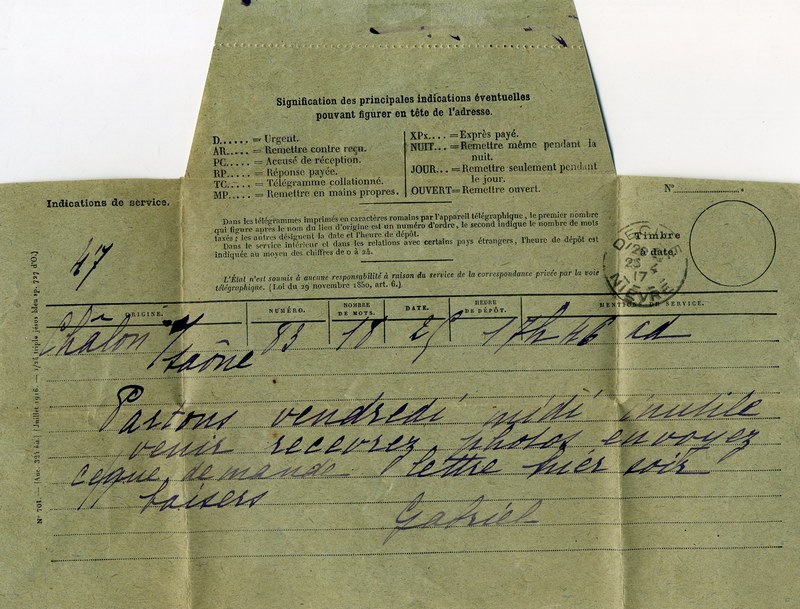 Signification des principales indications éventuelles
pouvant figurer en tête de l'adresse.
D...... = Urgent.
AR..... = Remettre contre reçu.
PC..... = Accusé de réception.
RP..... = Réponse payée.
TC..... = Télégramme collationné.
MP..... = Remettre en mains propres.
XPx.... = Exprès payé.
NUIT... = Remettre même pendant la
nuit.
JOUR... = Remettre seulement pendant
le jour.
OUVERT = Remettre ouvert.
Indications de service.
47
Dans les télégrammes imprimés en caractères romains par l'appareil télégraphique, le premier nombre
qui figure après le nom du lieu d'origine est un numéro d'ordre, le second indique le nombre de mots
taxés; les autres désignent la date et l'heure de dépôt.
Dans le service intérieur et dans les relations avec certains pays étrangers, l'heure de dépôt est
indiquée au moyen des chiffres de 0 à 24.
L'État n'est soumis à aucune responsabilité à raison du service de la correspondance privée par la voie
télégraphique. (Loi du 29 novembre 1850, art. 6.)
N° .
Timbre
à date.
NIÈVRE
ORIGINE. NUMÉRO. NOMBRE DE MOTS. DATE. HEURE DE DÉPÔT. MENTIONS DE SERVICE.
Chalon s/ Saône 83 18 25 17h 46 cd
Partons vendredi midi inutile
venir recevrez photos envoyez
ceque demande lettre hier soir
baisers
Gabriel
N° 701. — (Juillet 1916.